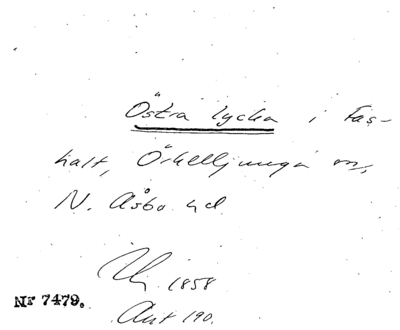 Östra lycka i Fas-
halt, Örkelljunga sn,
N. Åsbo hd
1858
Nr 7479.
Akt 190.